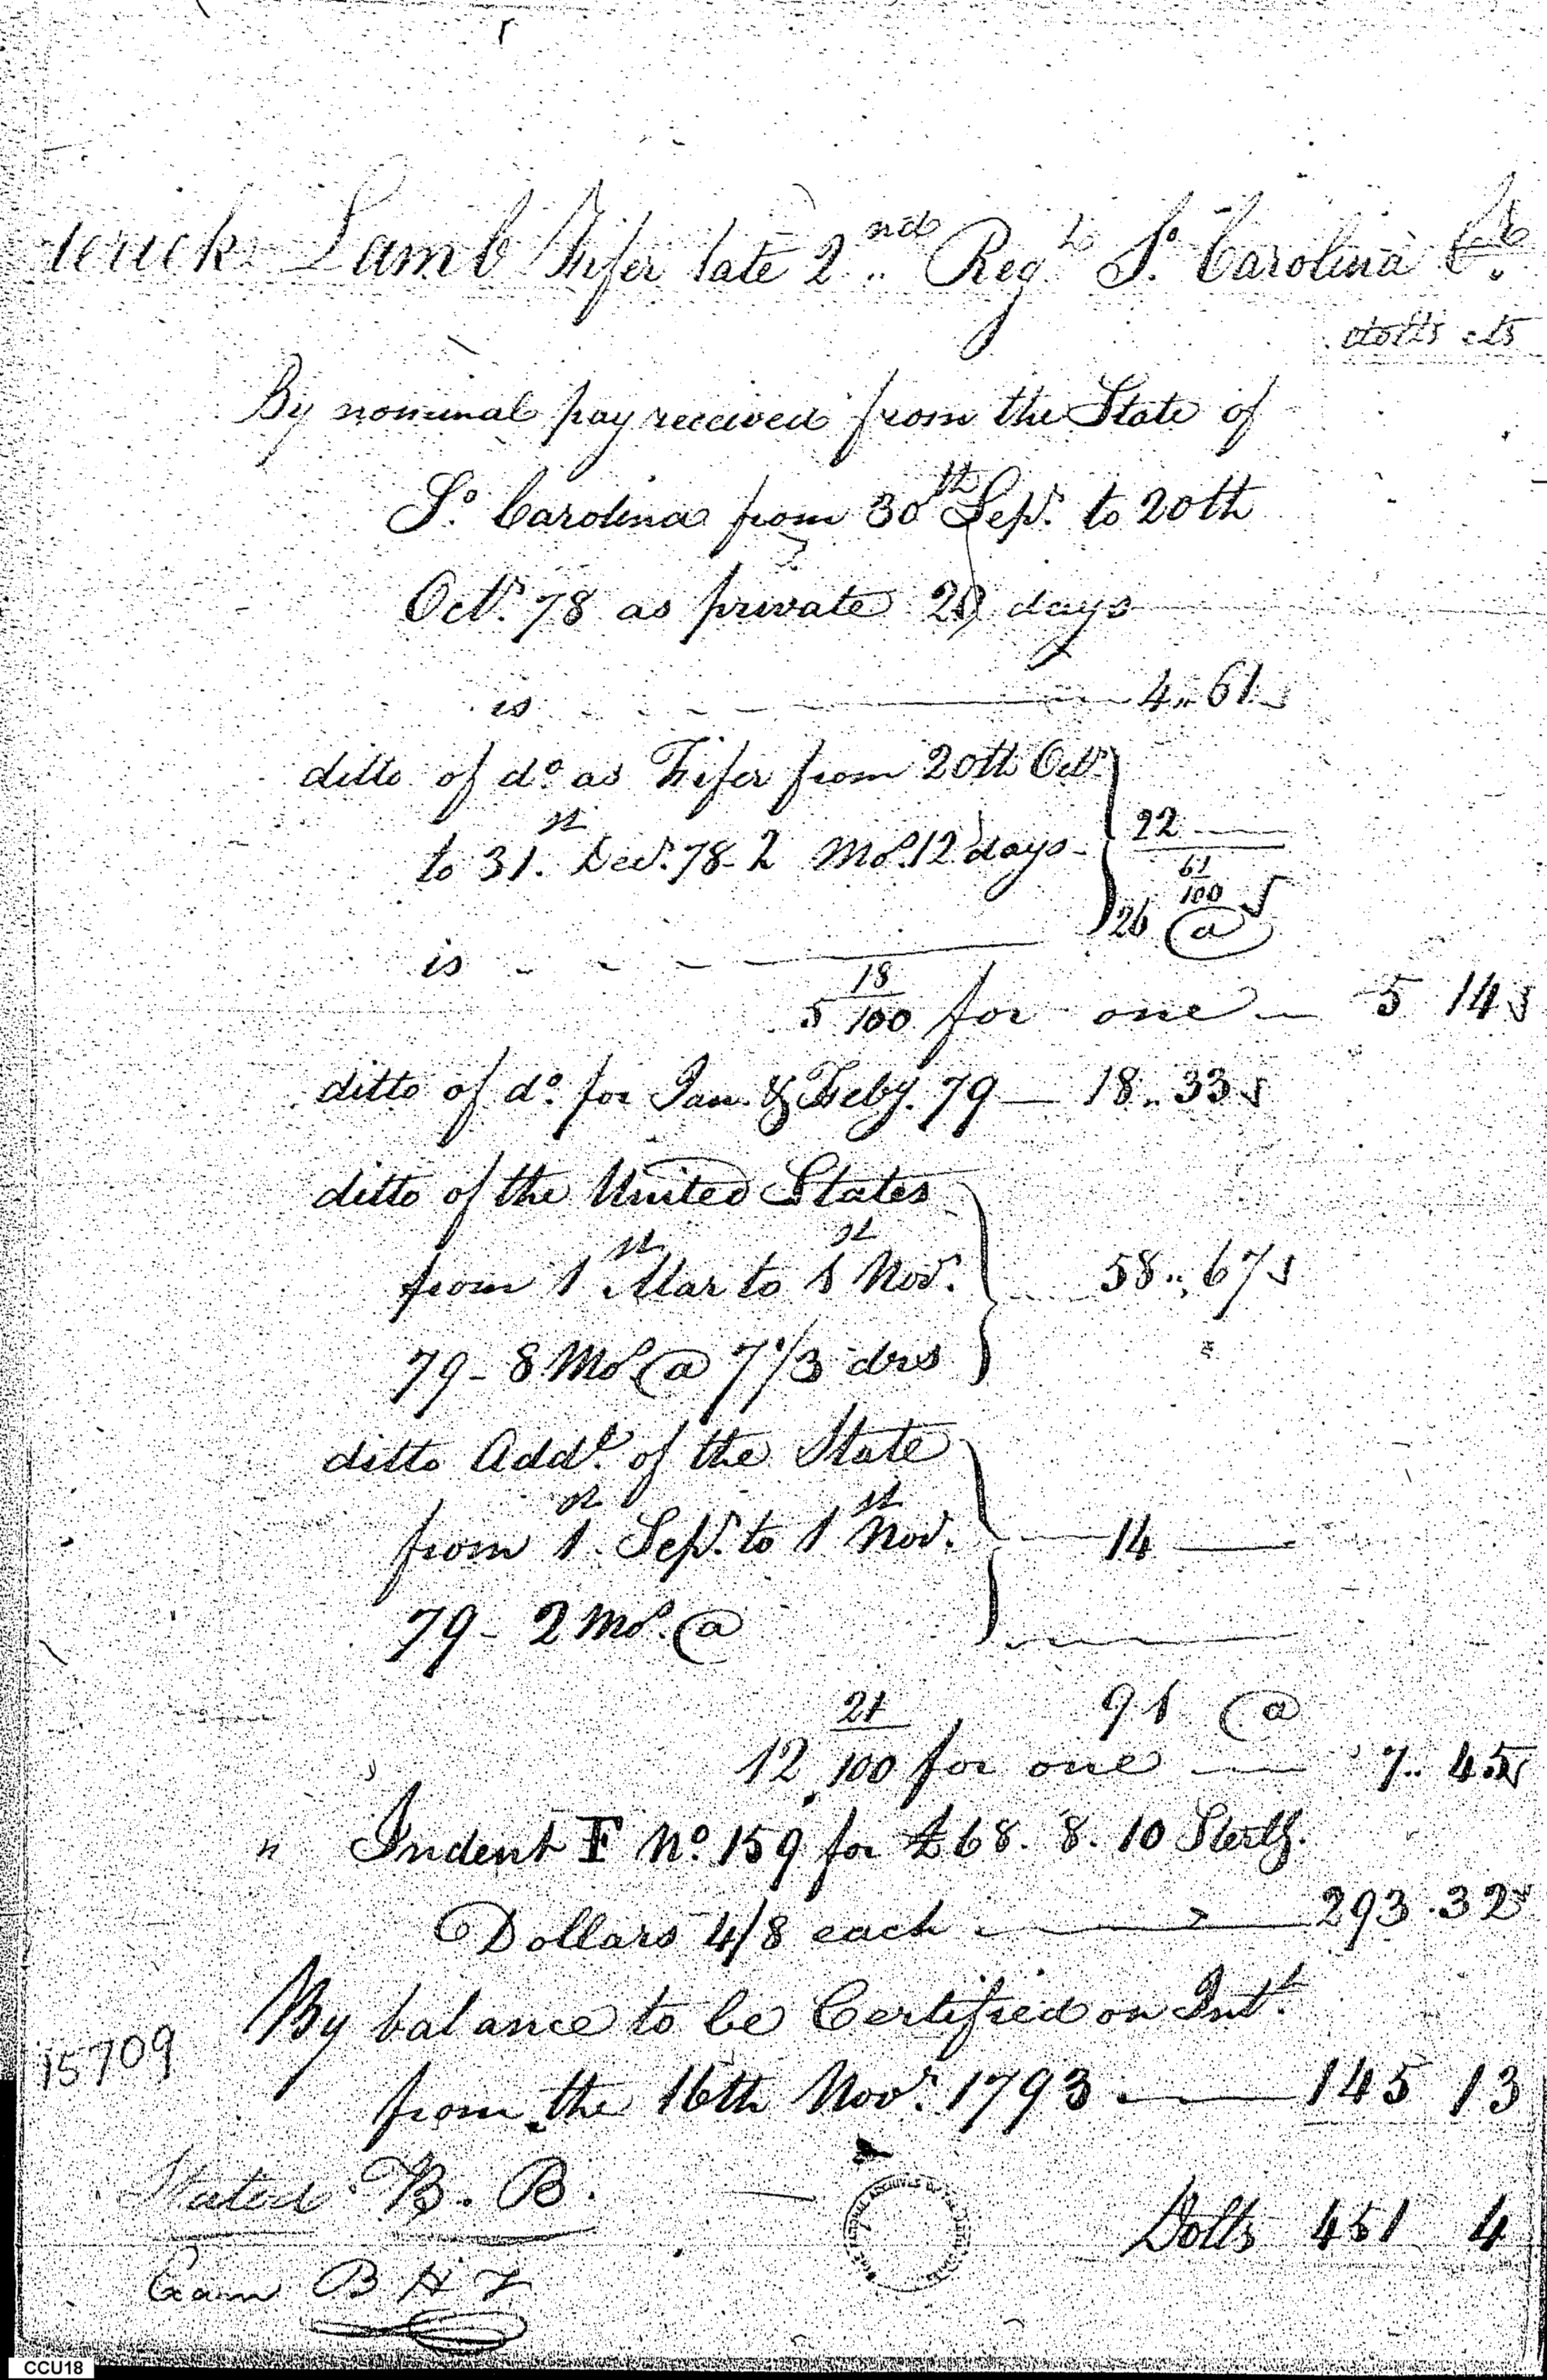 terick Lamb Fifer late 2nd Regt So. Carolina Cr.
dolls cts
By nominal pay received from the State of
So. Carolina from 30th Sepr. to 20th
Octr. 78 as private 20 days
is 4.. 61
ditto of do. as Fifer from 20th Octr.
to 31.st Decr. 78 - 2 Mos. 12 days - 22
61/100
is 26 @
5 18/100 for one — 5 14
ditto of do. for Jan. & Feby. 79 — 18.. 33
ditto of the United States
from 1st Mar to 1st Nov. 58.. 67
79 - 8 Mos @ 7 1/3 drs
ditto Addl. of the State
from 1st Sepr. to 1st Nov. 14
79 - 2 Mos. @
91 @
12 21/100 for one 7.. 45
" Indent F No. 159 for £68. 8. 10 Sterlg.
Dollars 4/8 each 293.32
By balance to be Certified on Intt.
15709
from the 16th Novr. 1793 — 145 13
Stated B. B.
Dolls 451 4
Exam B H T
CCU18